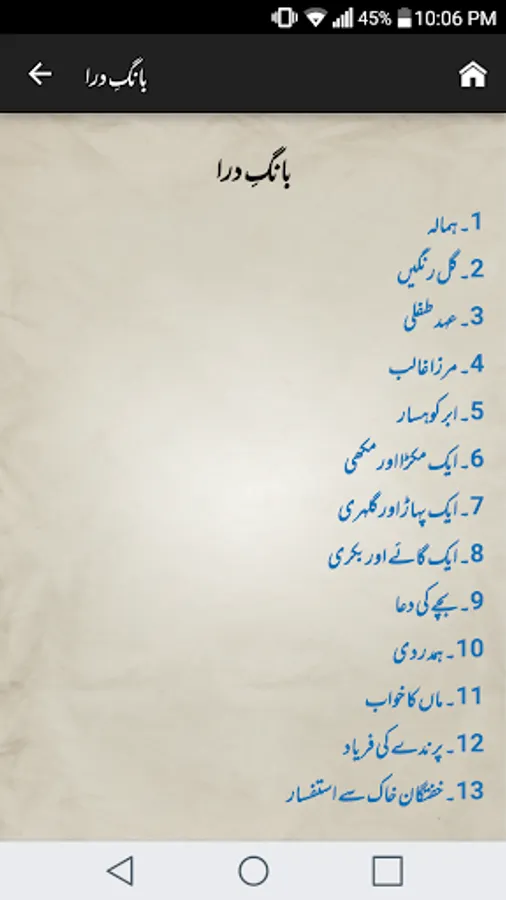 45% 10:06 PM
بانگِ درا
بانگِ درا
1۔ ہمالہ
2۔ گل رنگیں
3۔ عہد طفلی
4۔ مرزا غالب
5۔ ابر کوہسار
6۔ ایک مکڑا اور مکھی
7۔ ایک پہاڑ اور گلہری
8۔ ایک گائے اور بکری
9۔ بچے کی دعا
10۔ ہمدردی
11۔ ماں کا خواب
12۔ پرندے کی فریاد
13۔ خفتگان خاک سے استفسار